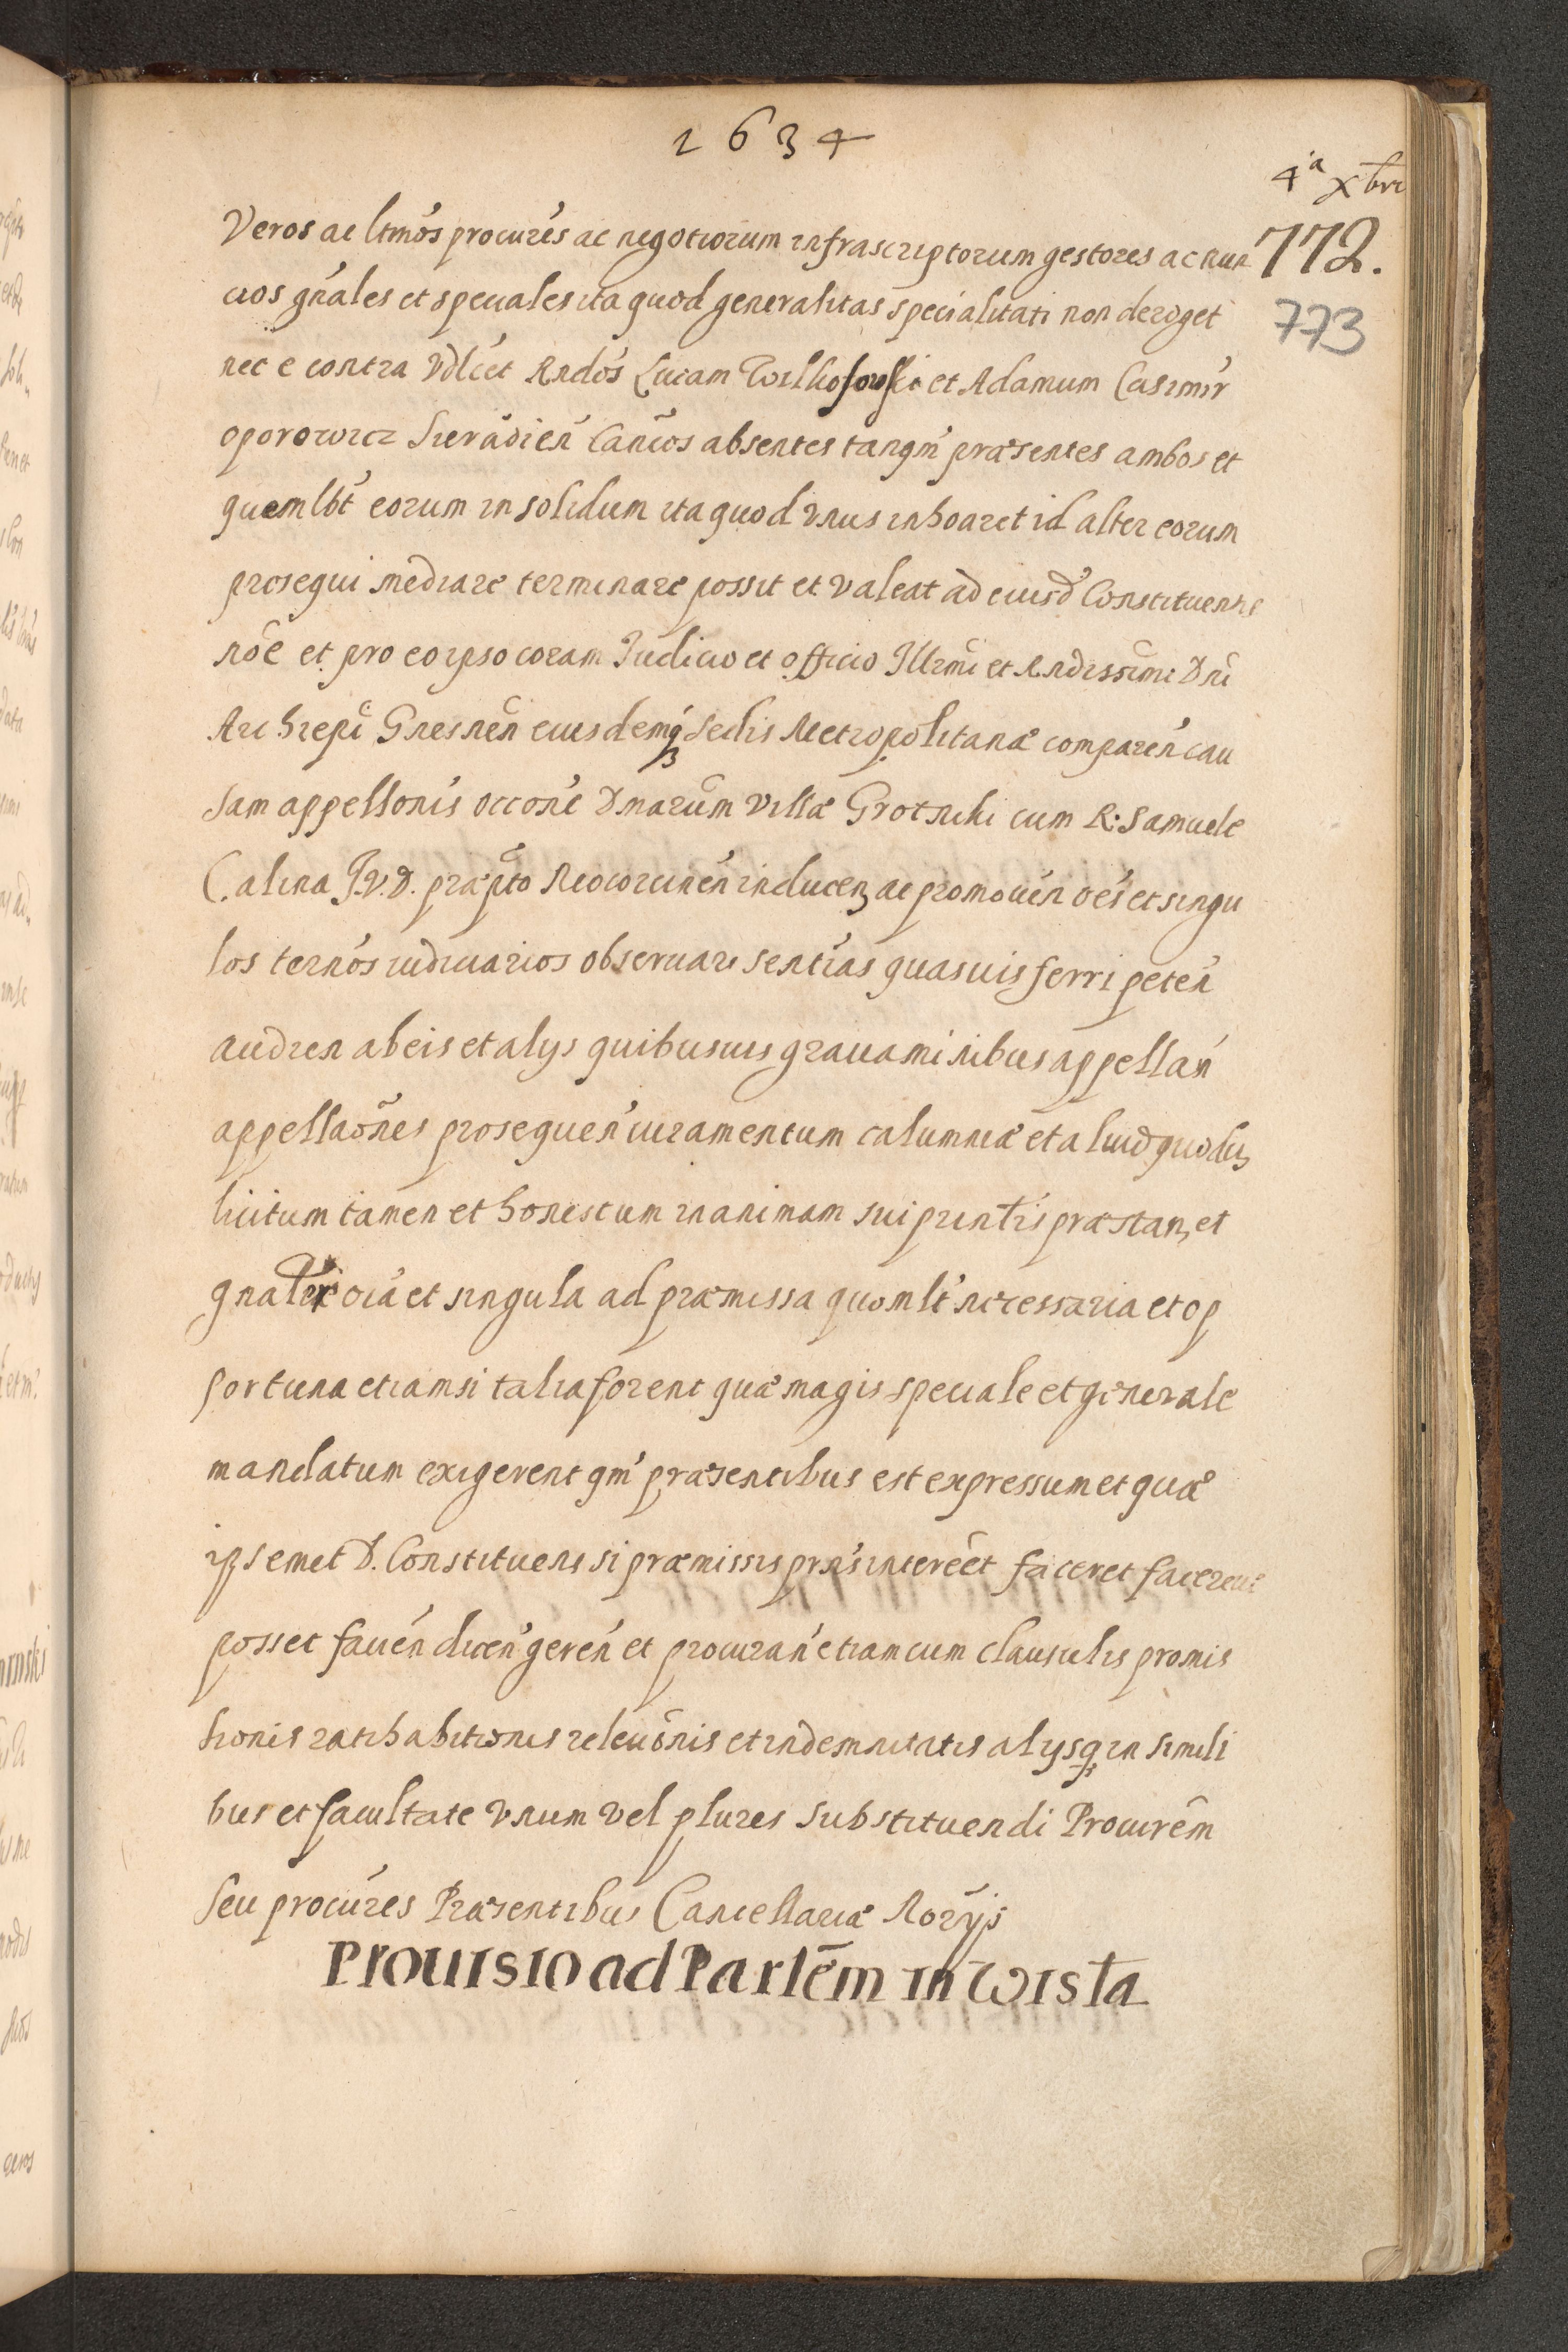 1634
4ᵃ Xbri
772.
773
Veros ac ltmôs procurés ac negotiorum infrascriptorum gestores ac nun
cios gnáles et speciales ita quod generalitas specialitati non deroget
nec e contra Vdlcet Rndós Lucam Wilkosowski et Adamum Casimir
oporowicz Siradień Canicos absentes tanqḿ præsentes ambos et
quemlbt́ eorum in solidum ita quod vnus inhoaret id alter eorum
prosequi mediare terminare possit et valeat ad eiusd́ Constituentis
nôe et pro eo ipso coram Iudicio et officio Illrmi et Rndissimi Dni
Archiepi Gnesnen eiusdemq; Sedis Metropolitanæ comparén cau
sam appellonis occône Dmarum Villæ Grotniki cum R: Samuele
Calina J.V.D. præpto Neocorcinen inducen, ac promouén oes et singu
los ternós iudiciarios obseruari sentías quasuis ferri petén
audien ab eis et alys quibusuis grauaminibus appellań
appellaônes prosequeń iuramentum calumniæ et aliud quodu,
licitum tamen et honestum in animam sui printis præstan, et
gnalr oía et singula ad præmissa quomlt́ necessaria et op
portuna etiamsi talia forent quæ magis speciale et generale
mandatum exigerent qm̃ præsentibus est expressum et quæ
ipsemet D. Constituens si præmissis prńs intereét faceret facereue
posset faueń diceń gereń et procurań etiam cum clausulis promis
sionis ratihabitionis releuônis et indemnitatis alysq; in simili
bus et facultate vnum vel plures substituendi Procurêm
seu procúres Præsentibus Cancellariæ Noryis
Prouisio ad Partēm in Wista